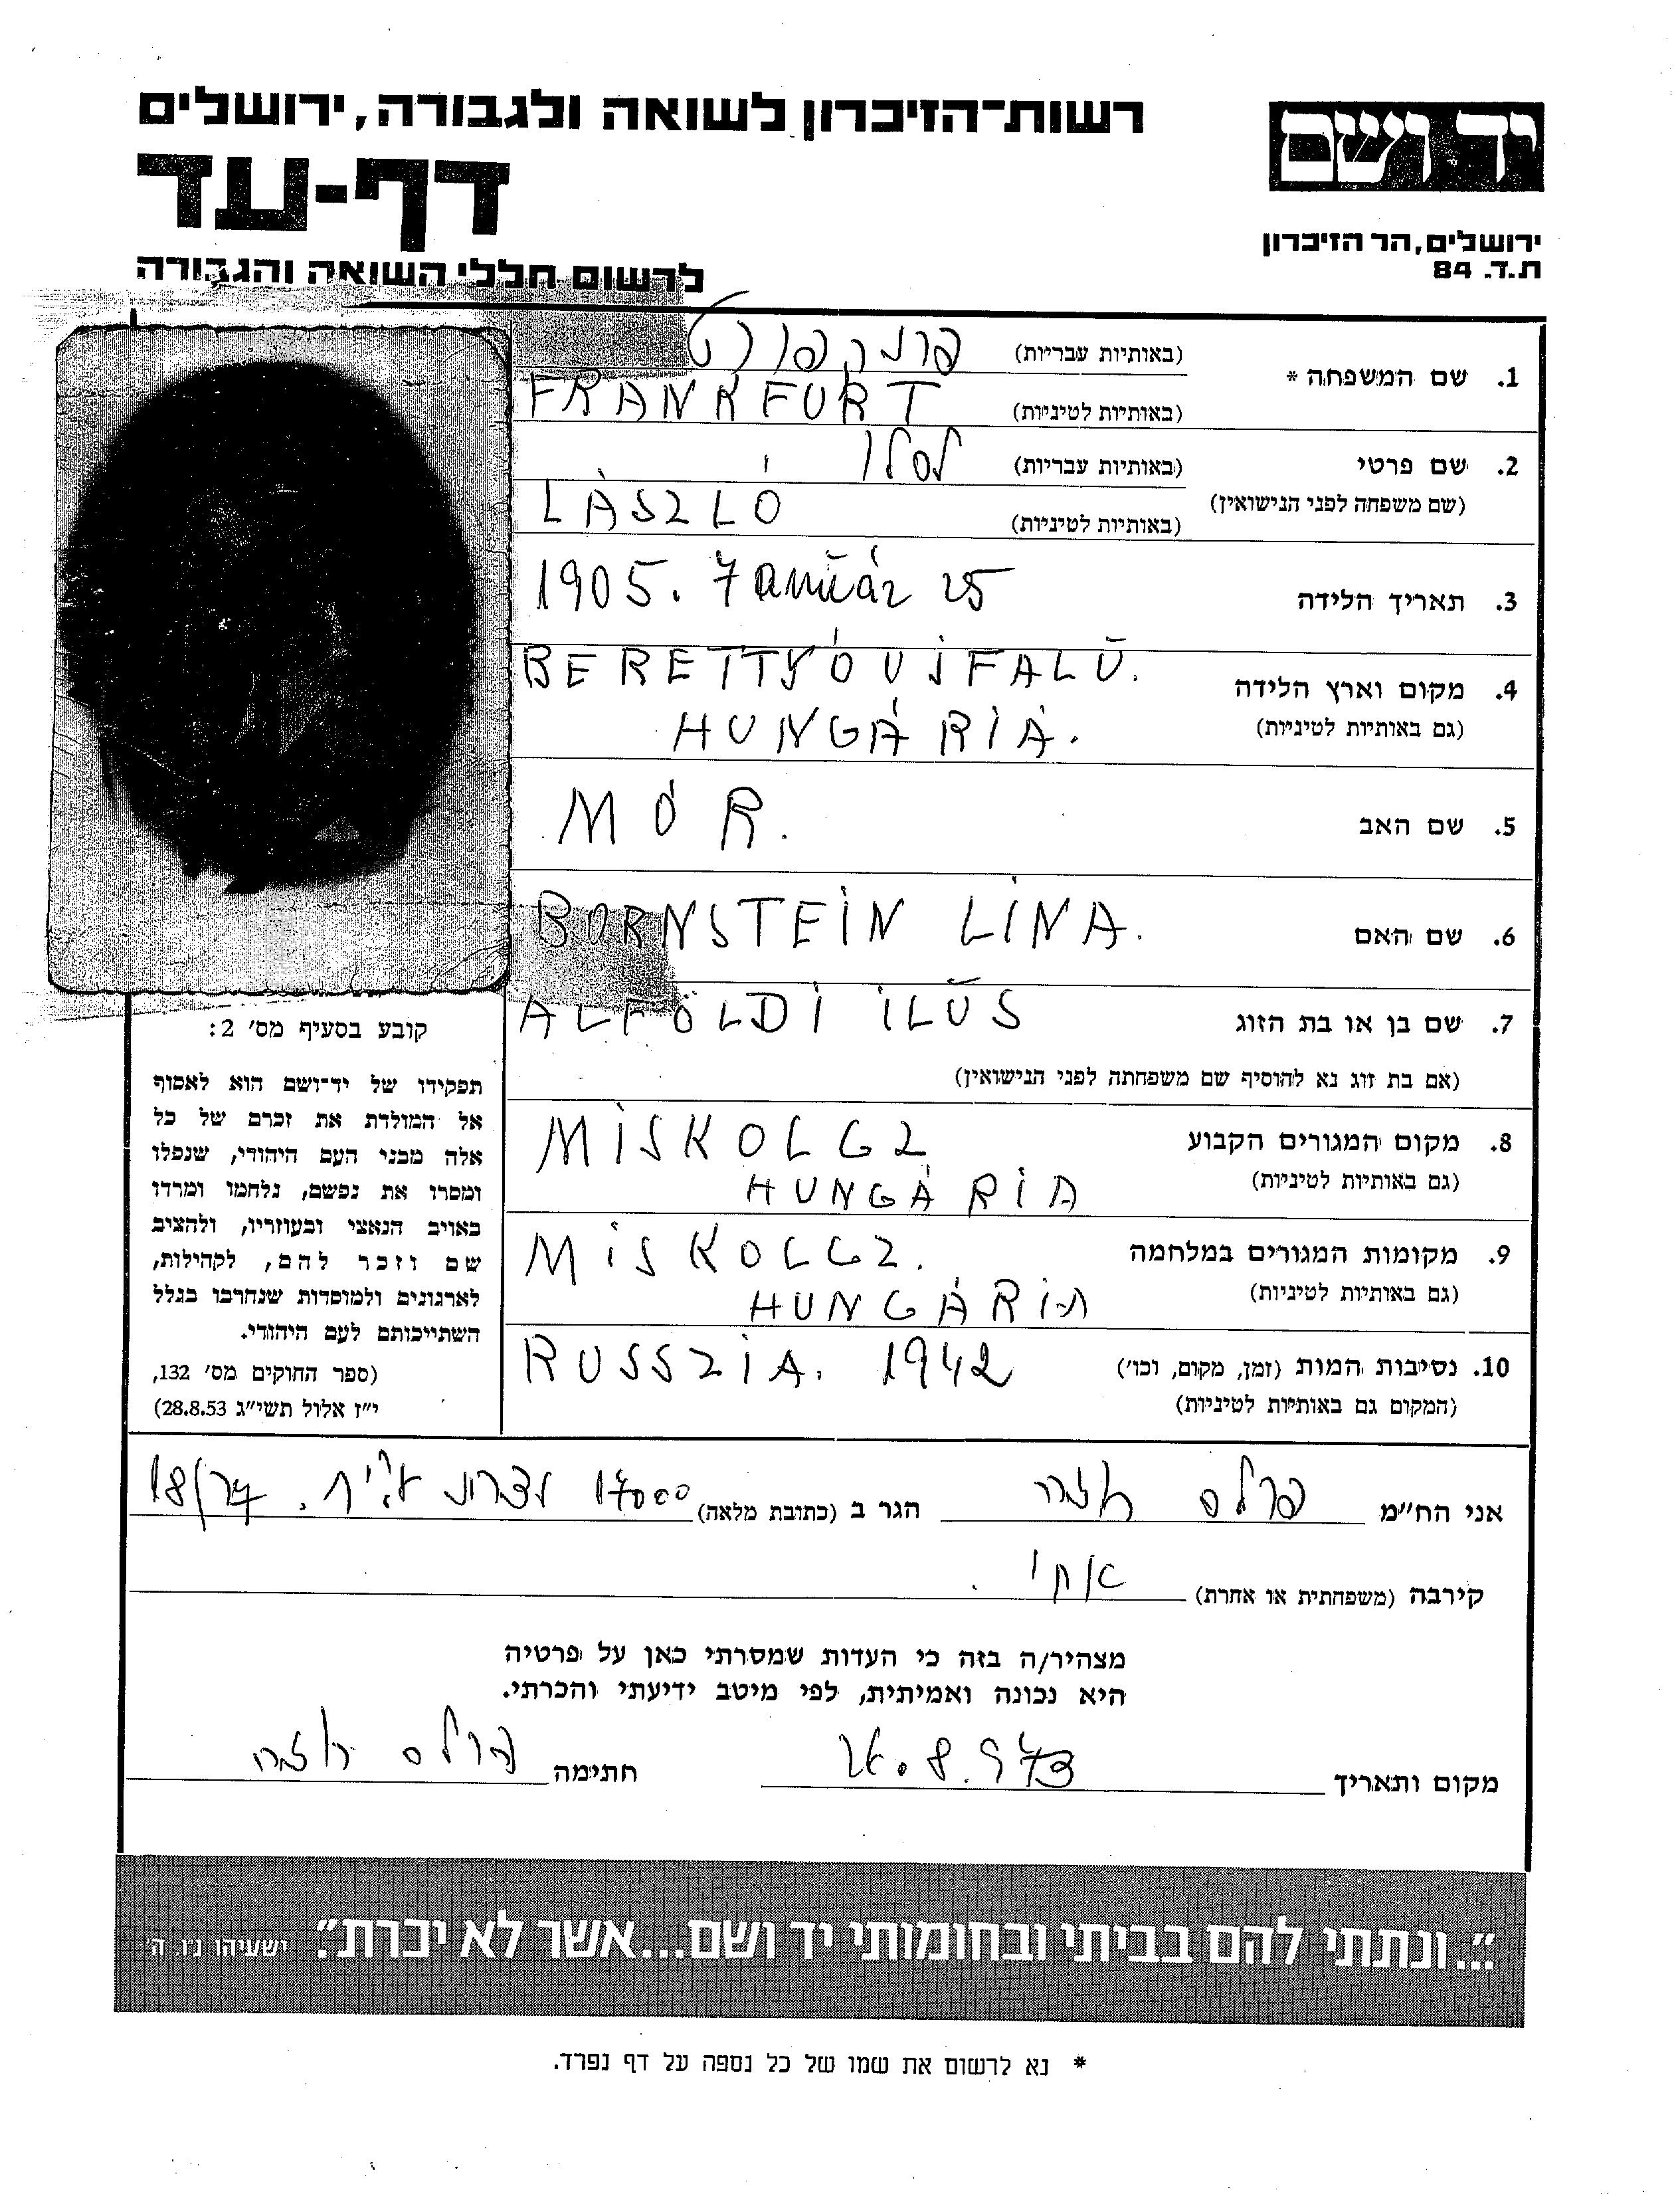 יד ושם
רשות־הזיכרון לשואה ולגבורה, ירושלים
דף-עד
ירושלים, הר הזיכרון
ת.ד. 84
לרשום חללי השואה והגבורה
1. שם המשפחה * (באותיות עבריות) פרנקפורט
(באותיות לטיניות) FRANKFURT
2. שם פרטי (באותיות עבריות) לסלו
(שם משפחה לפני הנישואין) (באותיות לטיניות) LÁSZLÓ
3. תאריך הלידה 1905. Január 25
4. מקום וארץ הלידה BERETTYÓUJFALU.
(גם באותיות לטיניות) HUNGÁRIA.
5. שם האב MÓR.
6. שם האם BORNSTEIN LINA.
7. שם בן או בת הזוג ALFÖLDI ILUS
(אם בת זוג נא להוסיף שם משפחתה לפני הנישואין)
8. מקום המגורים הקבוע MISKOLCZ
(גם באותיות לטיניות) HUNGÁRIA
9. מקומות המגורים במלחמה MISKOLCZ.
(גם באותיות לטיניות) HUNGÁRIA
10. נסיבות המות (זמן, מקום, וכו') RUSSZIA. 1942
(המקום גם באותיות לטיניות)
קובע בסעיף מס' 2:
תפקידו של יד־ושם הוא לאסוף
אל המולדת את זכרם של כל
אלה מבני העם היהודי, שנפלו
ומסרו את נפשם, נלחמו ומרדו
באויב הנאצי ובעוזריו, ולהציב
שם וזכר להם, לקהילות,
לארגונים ולמוסדות שנחרבו בגלל
השתייכותם לעם היהודי.
(ספר החוקים מס' 132,
י"ז אלול תשי"ג 28.8.53)
אני הח"מ פרלס רוזה הגר ב (כתובת מלאה) 17000 נצרת עי"ת. 18/
קירבה (משפחתית או אחרת) אחי.
מצהיר/ה בזה כי העדות שמסרתי כאן על פרטיה
היא נכונה ואמיתית, לפי מיטב ידיעתי והכרתי.
מקום ותאריך חתימה פרלס רוזה
"...ונתתי להם בביתי ובחומותי יד ושם...אשר לא יכרת". ישעיהו נ"ו, ה'
* נא לרשום את שמו של כל נספה על דף נפרד.